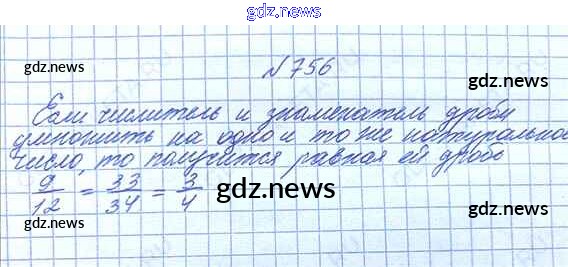 gdz.news
gdz.news
gdz.news
№756
Если числитель и знаменатель дроби
умножить на одно и то же натуральное
число, то получится равная ей дробь
9/12 = 33/34 = 3/4
gdz.news
gdz.news
gdz.news